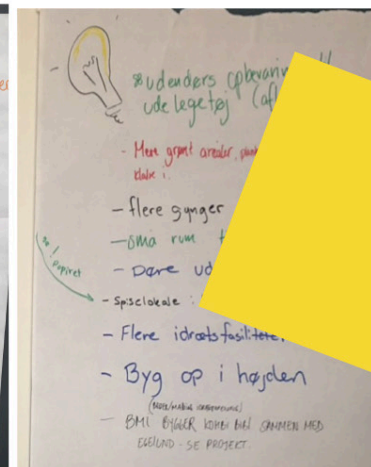 udendørs opbevarin
udelegetøj (afl
- Mere grønt arealer, plan
klatre i.
- flere gynger
- små rum t
- Døre ud
- Spiselokale :
- Flere idrætsfasiliteter
- Byg op i højden
- BMI BYGGER KOMBI BIBL SAMMEN MED
EGELUND - SE PROJEKT